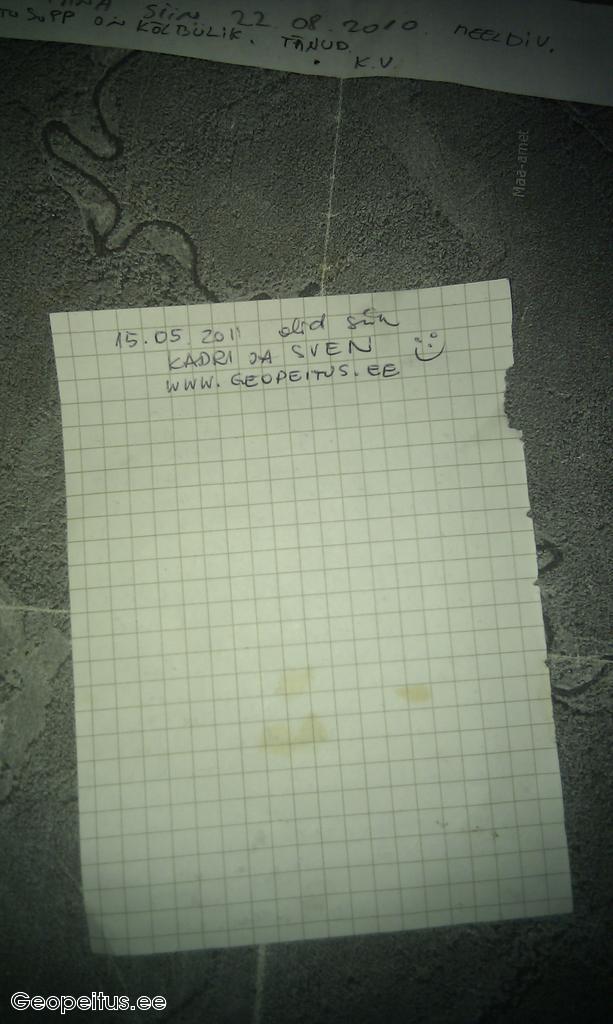 SIIN 22.08.2010. MEELDIV.
SUPP ON KÕLBULIK. TÄNUD.
K.V.
Maa-amet
15.05.2011 olid siin
KADRI JA SVEN
WWW.GEOPEITUS.EE
Geopeitus.ee